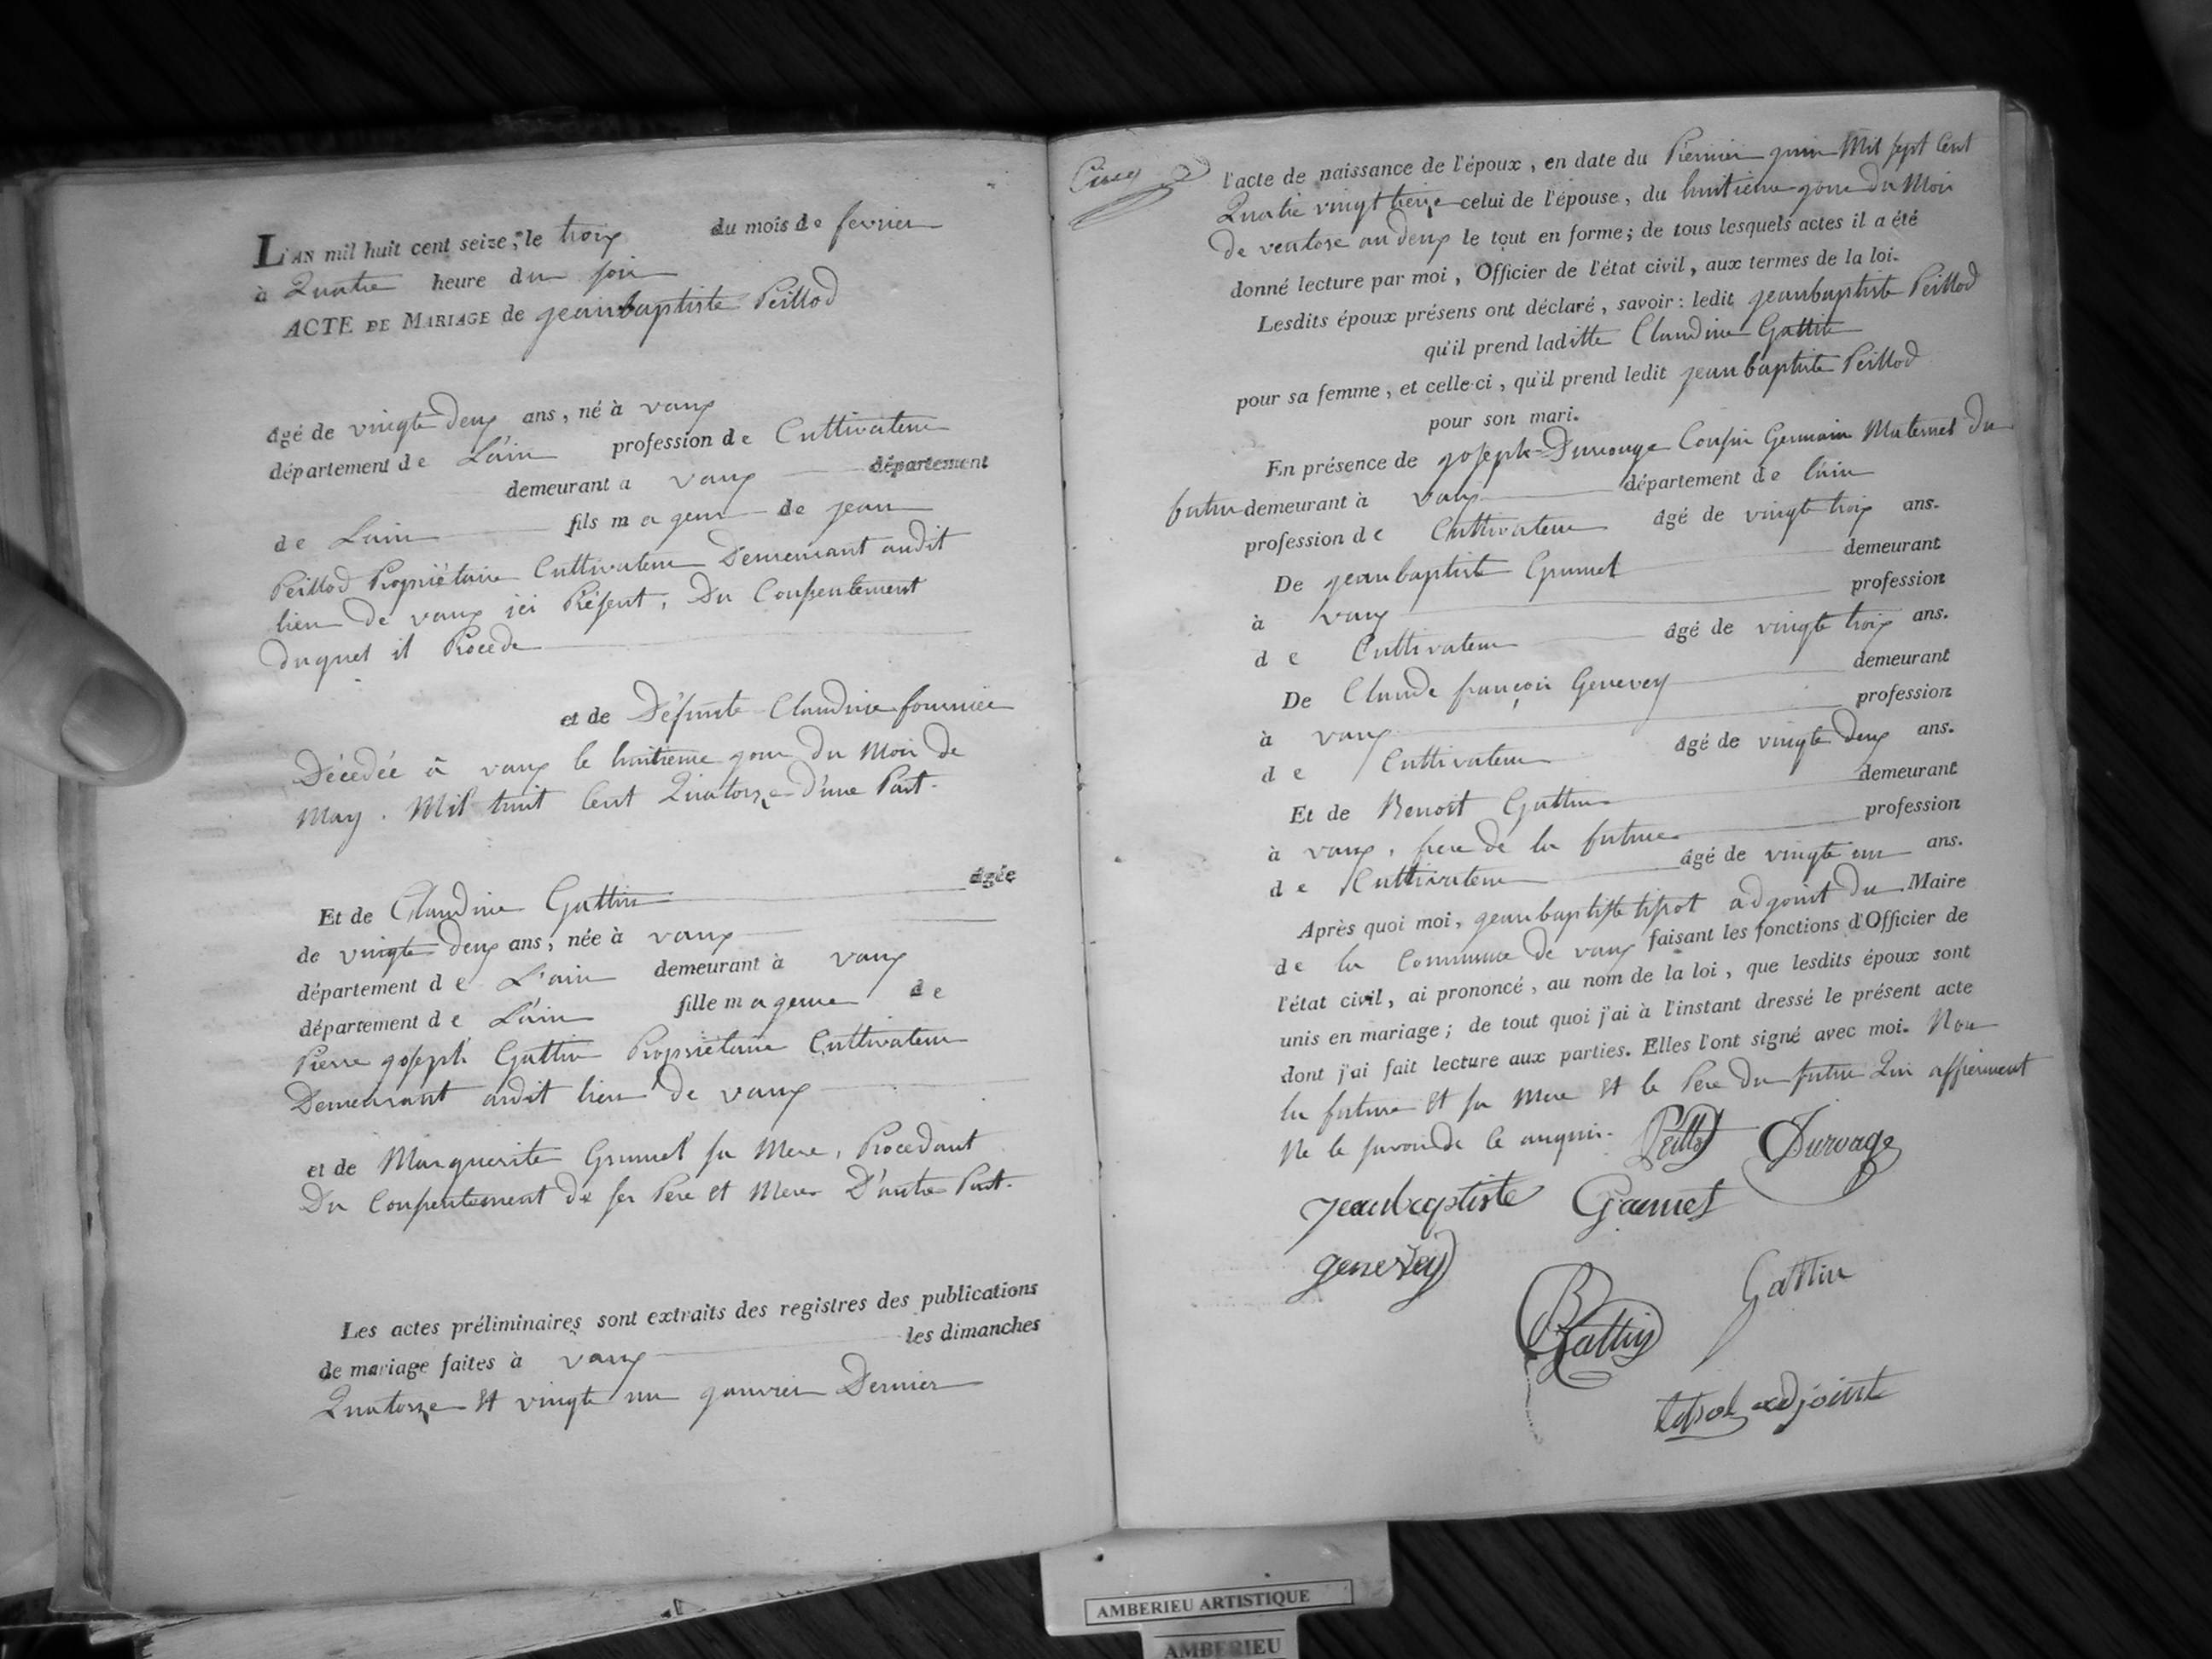 L'AN mil huit cent seize, le troix du mois de fevrier
à Quatre heure du soir
ACTE DE MARIAGE de jeanbaptiste Peillod
âgé de vingte deux ans, né à vaux
département de L'ain profession de Cultivateur
demeurant a vaux département
de Lain fils mageur de jean
Peillod Propriétaire Cultivateur Demeurant audit
lieu de vaux ici Présent, Du Consentement
duquel il Procede
et de Défunte Claudine fournier
Décedée à vaux le huitieme jour du Mois de
May. Mil huit Cent Quatorze d'une Part.
Et de Claudine Guttin âgée
de vingte deux ans, née à vaux
département de L'ain demeurant à vaux
département de L'ain fille mageure de
Pierre joseph Guttin Propriétaire Cultivateur
Demeurant audit lieu de vaux
et de Marguerite Grumel sa Mere, Procedant
Du Consentement de ses Pere et Mere D'autre Part.
Les actes préliminaires sont extraits des registres des publications
de mariage faites à vaux les dimanches
Quatorze et vingte un janvier Dernier
Cinq
l'acte de naissance de l'époux, en date du Piemier juin Mil sept Cent
Quatre vingt treize celui de l'épouse, du huitieme jour du Mois
de ventose an deux le tout en forme; de tous lesquels actes il a été
donné lecture par moi, Officier de l'état civil, aux termes de la loi.
Lesdits époux présens ont déclaré, savoir: ledit jeanbaptiste Peillod
qu'il prend laditte Claudine Guttin
pour sa femme, et celle-ci, qu'il prend ledit jean baptiste Peillod
pour son mari.
En présence de joseph Durouge Cousin Germain Maternel du
futur demeurant à vaux département de l'ain
profession de Cultivateur âgé de vingte troix ans.
De jeanbaptiste Grumel demeurant
à vaux profession
de Cultivateur âgé de vingte troix ans.
De Claude françois Genevey demeurant
à vaux profession
de Cultivateur âgé de vingte deux ans.
Et de Benoit Guttin demeurant
à vaux, frere de la future profession
de Cultivateur âgé de vingte un ans.
Après quoi moi, jeanbaptiste tissot adjoint du Maire
de la Commune de vaux faisant les fonctions d'Officier de
l'état civil, ai prononcé, au nom de la loi, que lesdits époux sont
unis en mariage; de tout quoi j'ai à l'instant dressé le présent acte
dont j'ai fait lecture aux parties. Elles l'ont signé avec moi. Non
la future et sa Mere et le Pere du futur Qui affirment
Ne le savoir de Ce enquis. Peillod Durvage
jeanbaptiste Grumel
genevey
B Gattin Gattin
tissot adjoint
AMBERIEU ARTISTIQUE
AMBERIEU